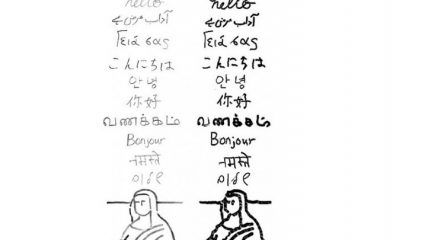 hello hello
Γειά σας Γειά σας
こんにちは こんにちは
안녕 안녕
你好 你好
வணக்கம் வணக்கம்
Bonjour Bonjour
नमस्ते नमस्ते